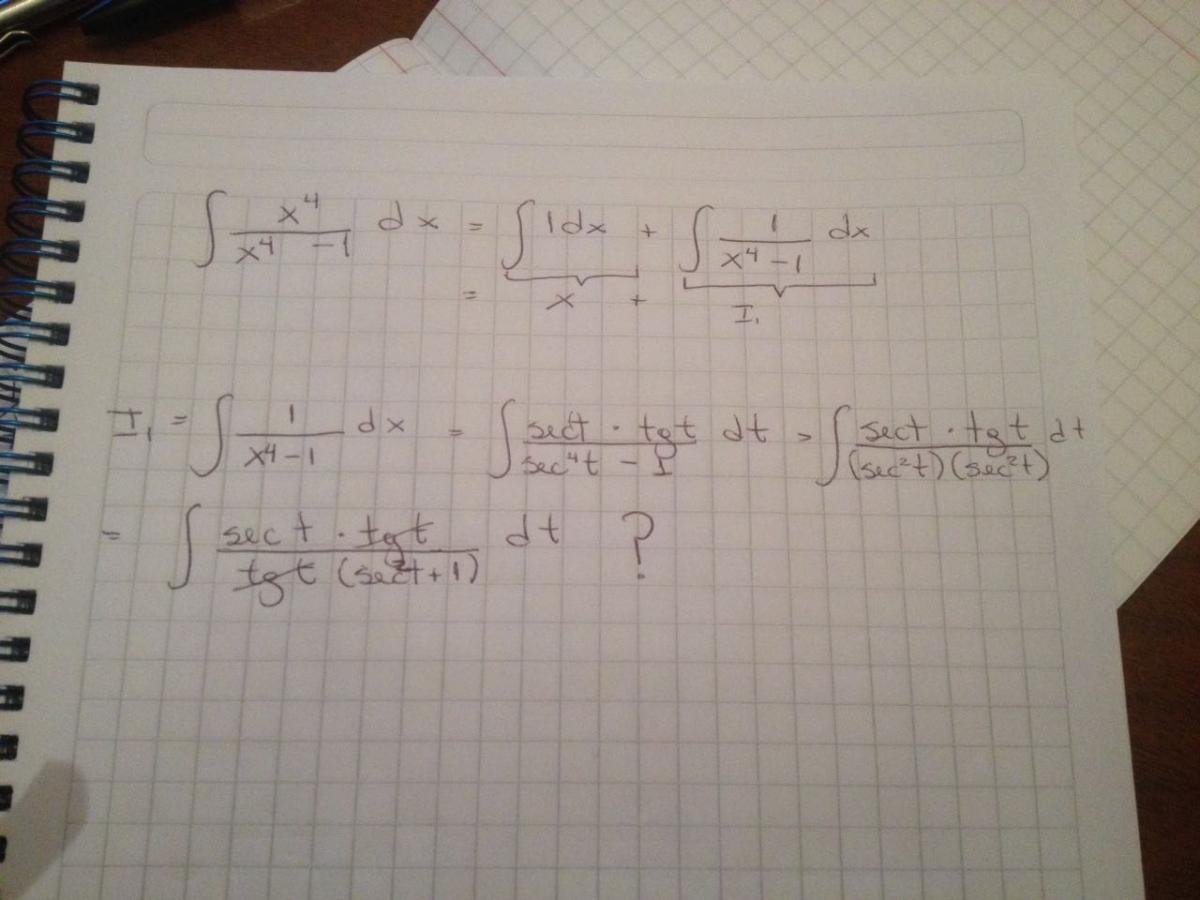 ∫ x⁴/(x⁴ - 1) dx = ∫ 1 dx + ∫ 1/(x⁴ - 1) dx
= x + I₁
I₁ = ∫ 1/(x⁴ - 1) dx = ∫ (sec t · tg t)/(sec⁴t - 1) dt = ∫ (sec t · tg t)/((sec²t)(sec²t)) dt
= ∫ (sec t · tg t)/(tg t (sec²t + 1)) dt ?